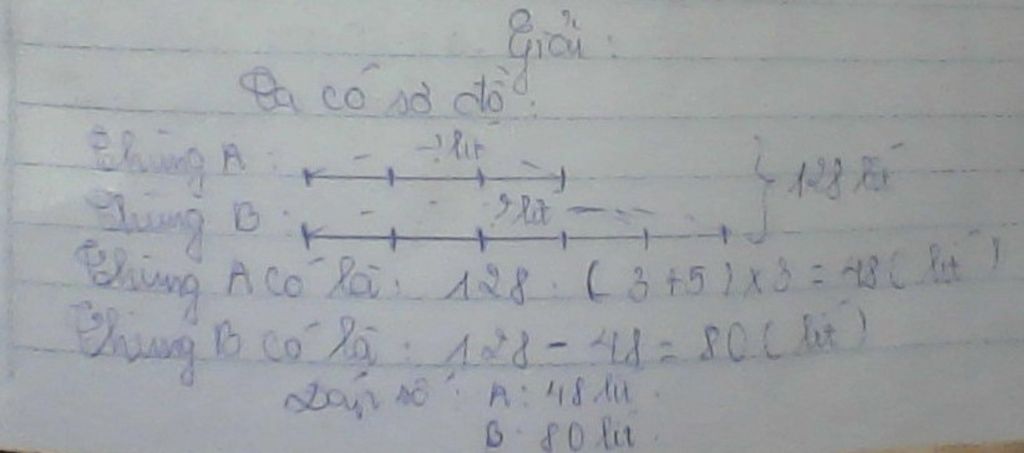 Giải:
Ta có sơ đồ:
Thùng A: ? lít
128 lít
Thùng B: ? lít
Thùng A có là: 128 : (3+5) x 3 = 48 ( lít )
Thùng B có là: 128 - 48 = 80 ( lít )
Đáp số: A: 48 lít.
B: 80 lít.